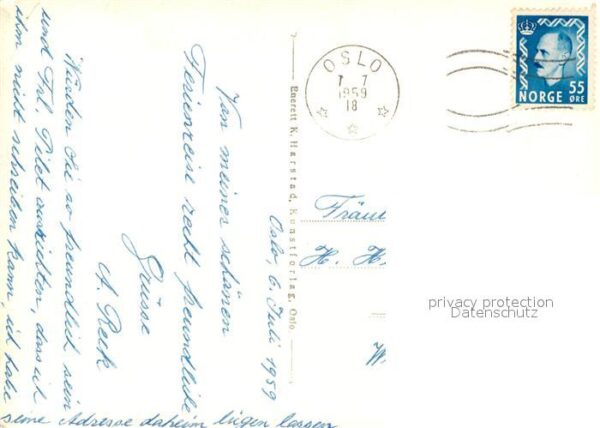 Oslo 6. Juli 1959
Von meiner schönen
Ferienreise recht freundliche
Grüsse
A. Reck
Würden Sie so freundlich sein
und Frl. Pilet ausrichten, dass ich
ihm nicht schreiben kann, ich habe
seine Adresse daheim liegen lassen
Everett K. Harstad, Kunstforlag, Oslo
OSLO
7 7
1959
18
NORGE
55
ØRE
Fräul
H. H.
W
privacy protection
Datenschutz